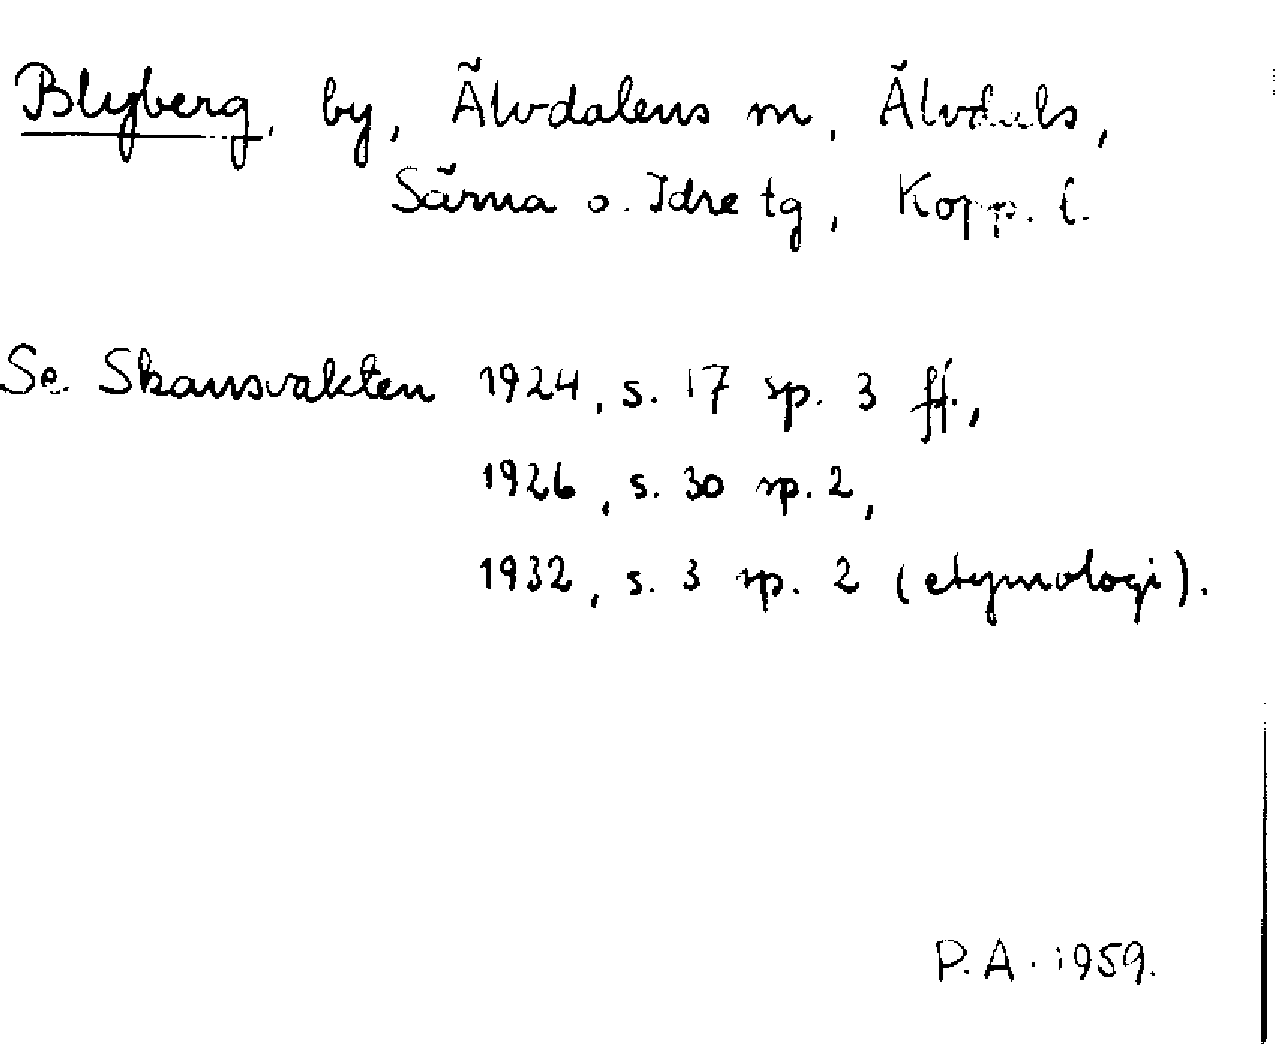 Blyberg, by, Älvdalens m, Älvdals,
Särna o. Idre tg, Kopp. l.
Se Skansvakten 1924, s. 17 sp. 3 ff.,
1926, s. 30 sp. 2,
1932, s. 3 sp. 2 (etymologi).
P.A. 1959.